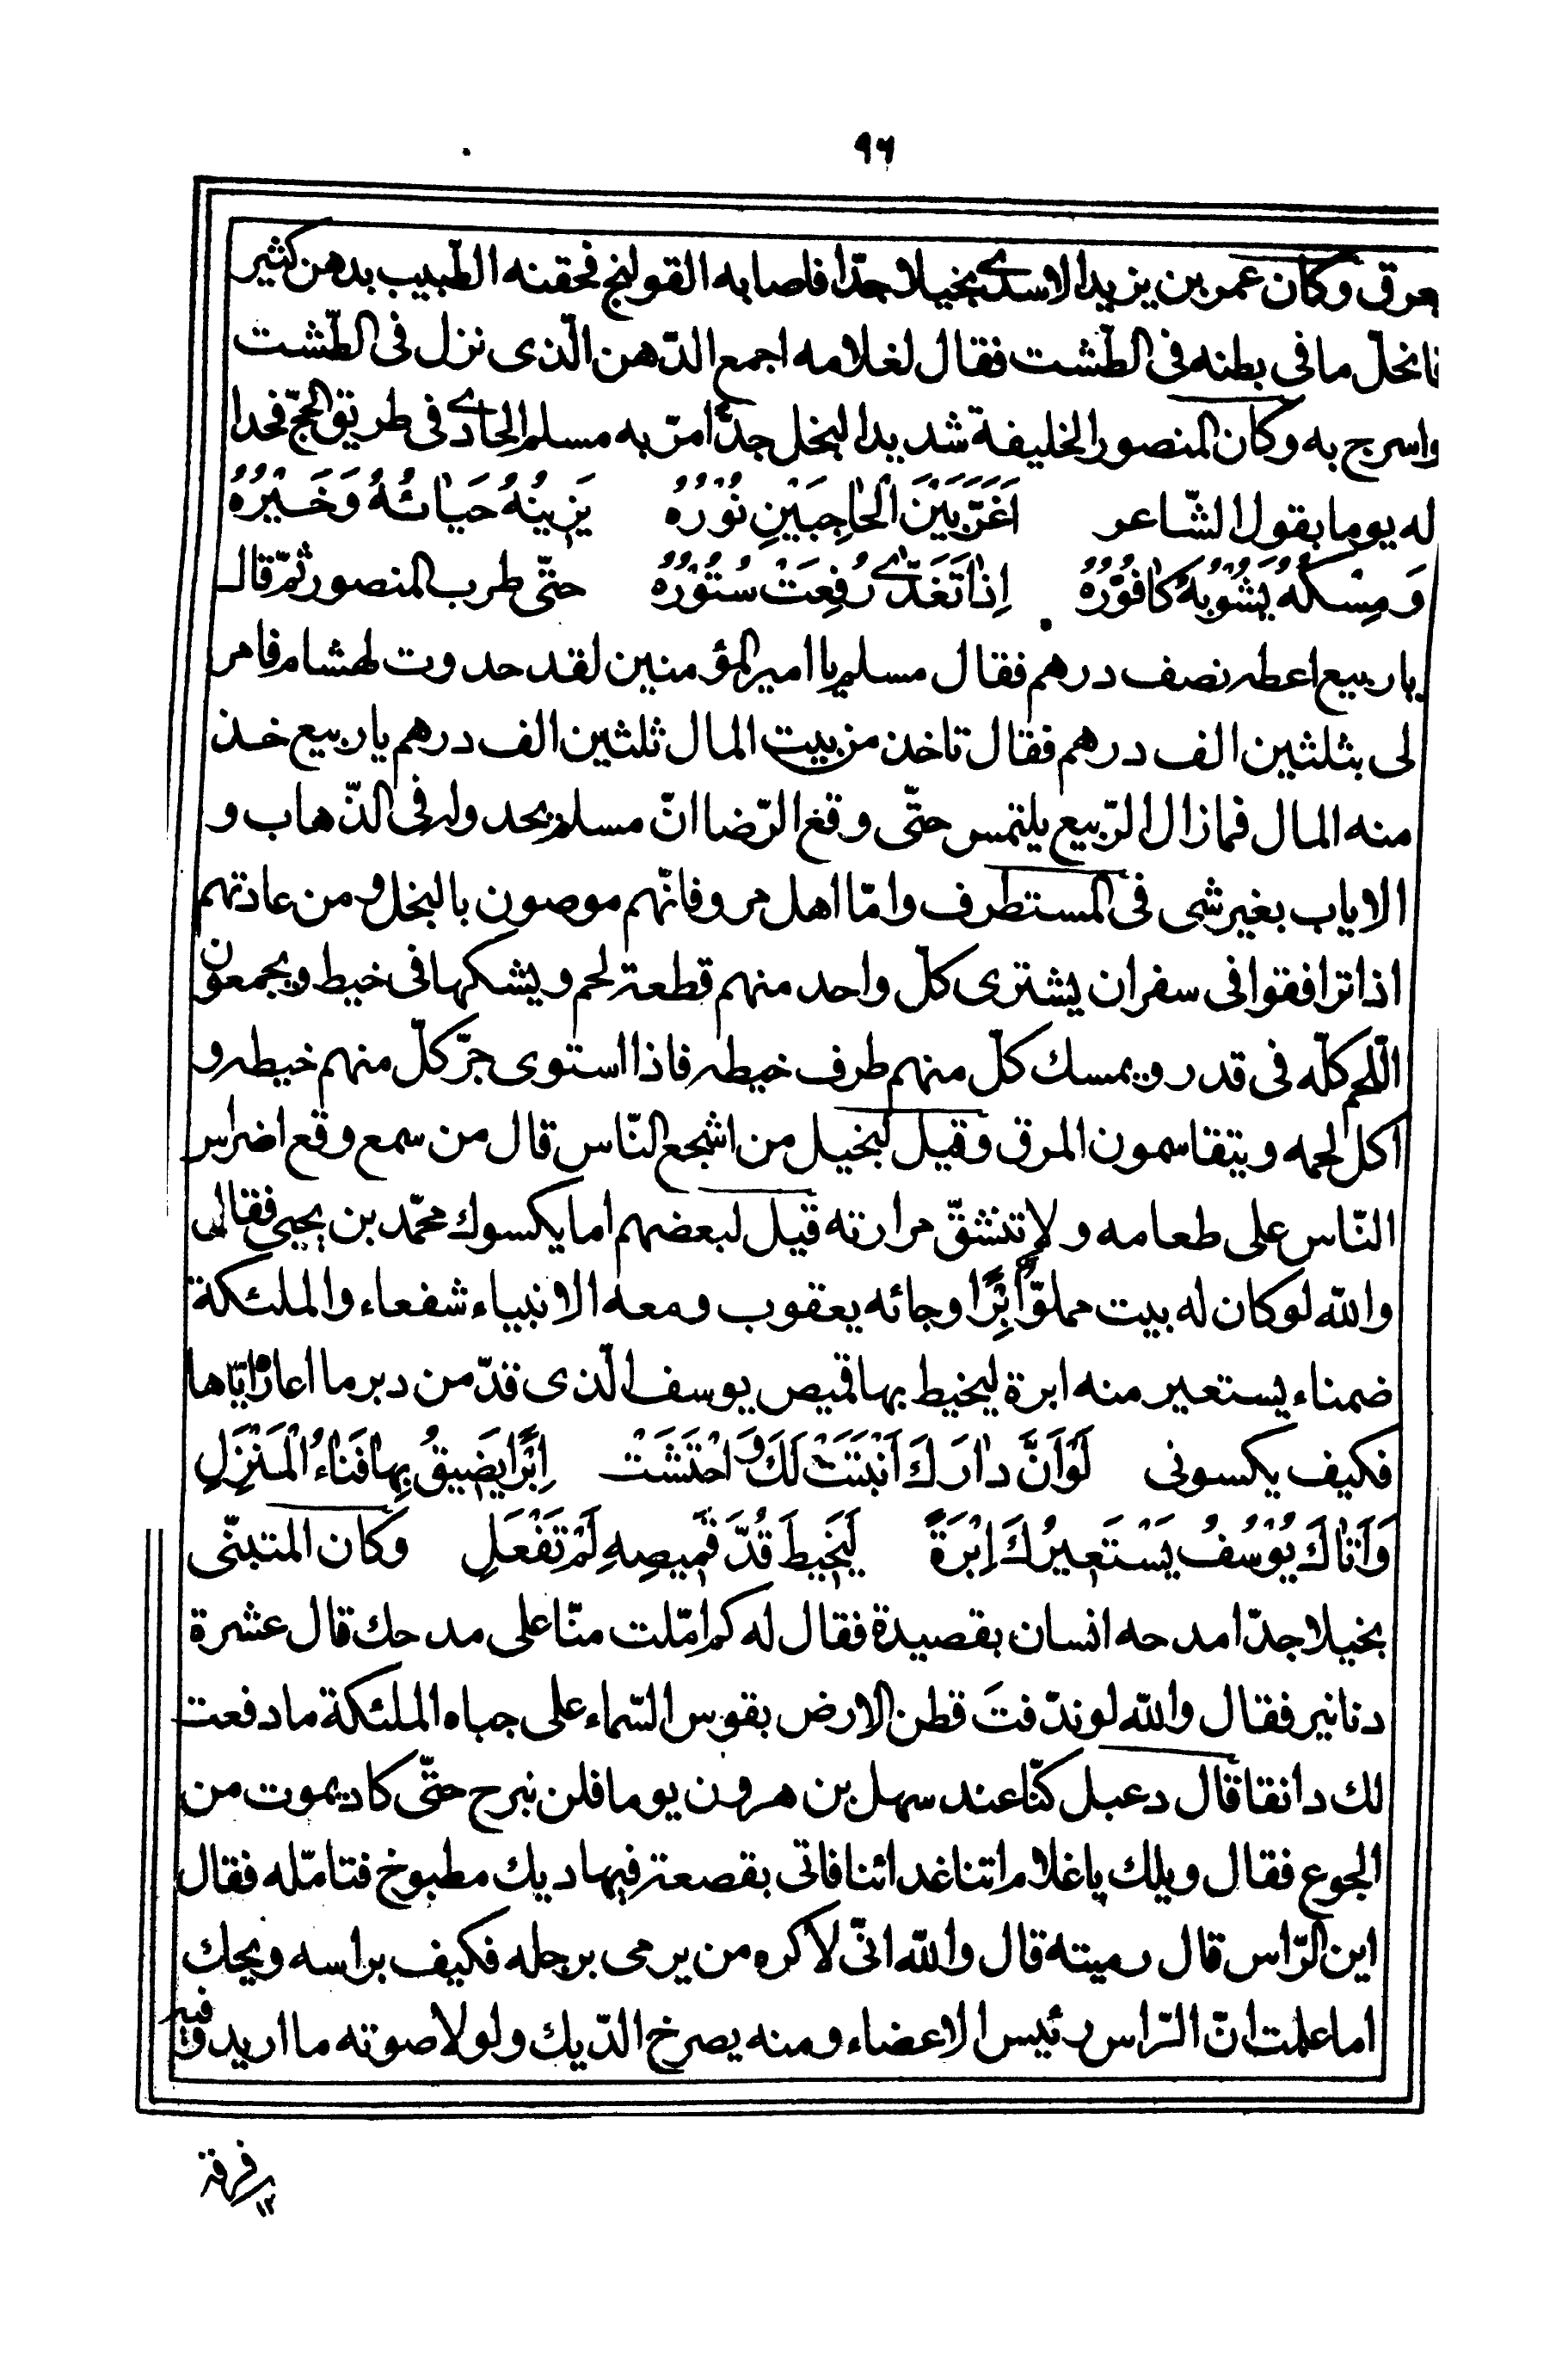 ٩٦
بعرق وكان عمر بن يزيد الاسدى بخيلا جدّا فاصابه القولنج فحقنه الطّبيب بدهن كثير
فانحلّ ما فى بطنه فى الطّشت فقال لغلامه اجمع الدّهن الّذى نزل فى الطّشت
واسرج به وكان المنصور الخليفة شديد البخل جدّا مرّ به مسلم الحادى فى طريق الحجّ فحدا
له يوما بقول الشّاعر اَغَرَّ بَيْنَ الْحٰاجِبَيْنِ نُوْرُهُ يَزِيْنُهُ حَيٰائُهُ وَخَيْرُهُ
وَمِسْكُهُ يَشُوْبُهُ كٰافُوْرُهُ اِذٰا تَغَدّٰى رُفِعَتْ سُتُوْرُهُ حتّى طرب المنصور ثمّ قال
يا ربيع اعطه نصف درهم فقال مسلم يا امير المؤمنين لقد حدوت لهشام فامر
لى بثلثين الف درهم فقال تاخذ من بيت المال ثلثين الف درهم يا ربيع خذ
منه المال فما زال الرّبيع يلتمس حتّى وقع الرّضا انّ مسلم يحدو له فى الذّهاب و
الاياب بغير شى فى المستطرف وامّا اهل مرو فانّهم موصون بالبخل ومن عادتهم
اذا ترافقوا فى سفر ان يشترى كلّ واحد منهم قطعة لحم ويشكها فى خيط ويجمعون
اللّحم كلّه فى قدر ويمسك كلّ منهم طرف خيطه فاذا استوى جرّ كلّ منهم خيطه و
اكل لحمه ويتقاسمون المرق وقيل لبخيل من اشجع النّاس قال من سمع وقع اضراس
النّاس على طعامه ولا تنشقّ مرارته قيل لبعضهم اما يكسوك محمّد بن يحيى فقال
والله لو كان له بيت مملوّا اِبَرًا وجائه يعقوب ومعه الانبياء شفعاء والملئكة
ضمناء يستعير منه ابرة ليخيط بها قميص يوسف الّذى قدّ من دبر ما اعاره ايّاها
فكيف يكسونى لَوْ اَنَّ دٰارَكَ اَنْبَتَتْ لَكَ وَ احْتَشَتْ اِبَرًا يَضِيقُ بِهٰا فَنٰاءُ الْمَنْزِلِ
وَاَتٰاكَ يُوْسُفُ يَسْتَعِيرُكَ اِبْرَةً لِيَخِيطَ قُدَّ قَمِيصِهِ لَمْ تَفْعَلِ وكان المتبنّى
بخيلا جدّا مدحه انسان بقصيدة فقال له كم امّلت منّا على مدحك قال عشرة
دنانير فقال والله لو ندّفتَ قطن الارض بقوس السّماء على جباه الملئكة ما دفعت
لك دانقا قال دعبل كنّا عند سهل بن هرون يوما فلن نبرح حتّى كاد يموت من
الجوع فقال ويلك يا غلام اتنا غدائنا فاتى بقصعة فيها ديك مطبوخ فتامّله فقال
اين الرّاس قال رميته قال والله انّى لاكره من يرمى برجله فكيف براسه ويحك
اما علمت انّ الرّاس رئيس الاعضاء ومنه يصرخ الدّيك ولولا صوته ما اريد وفيه
فرقة
١٢